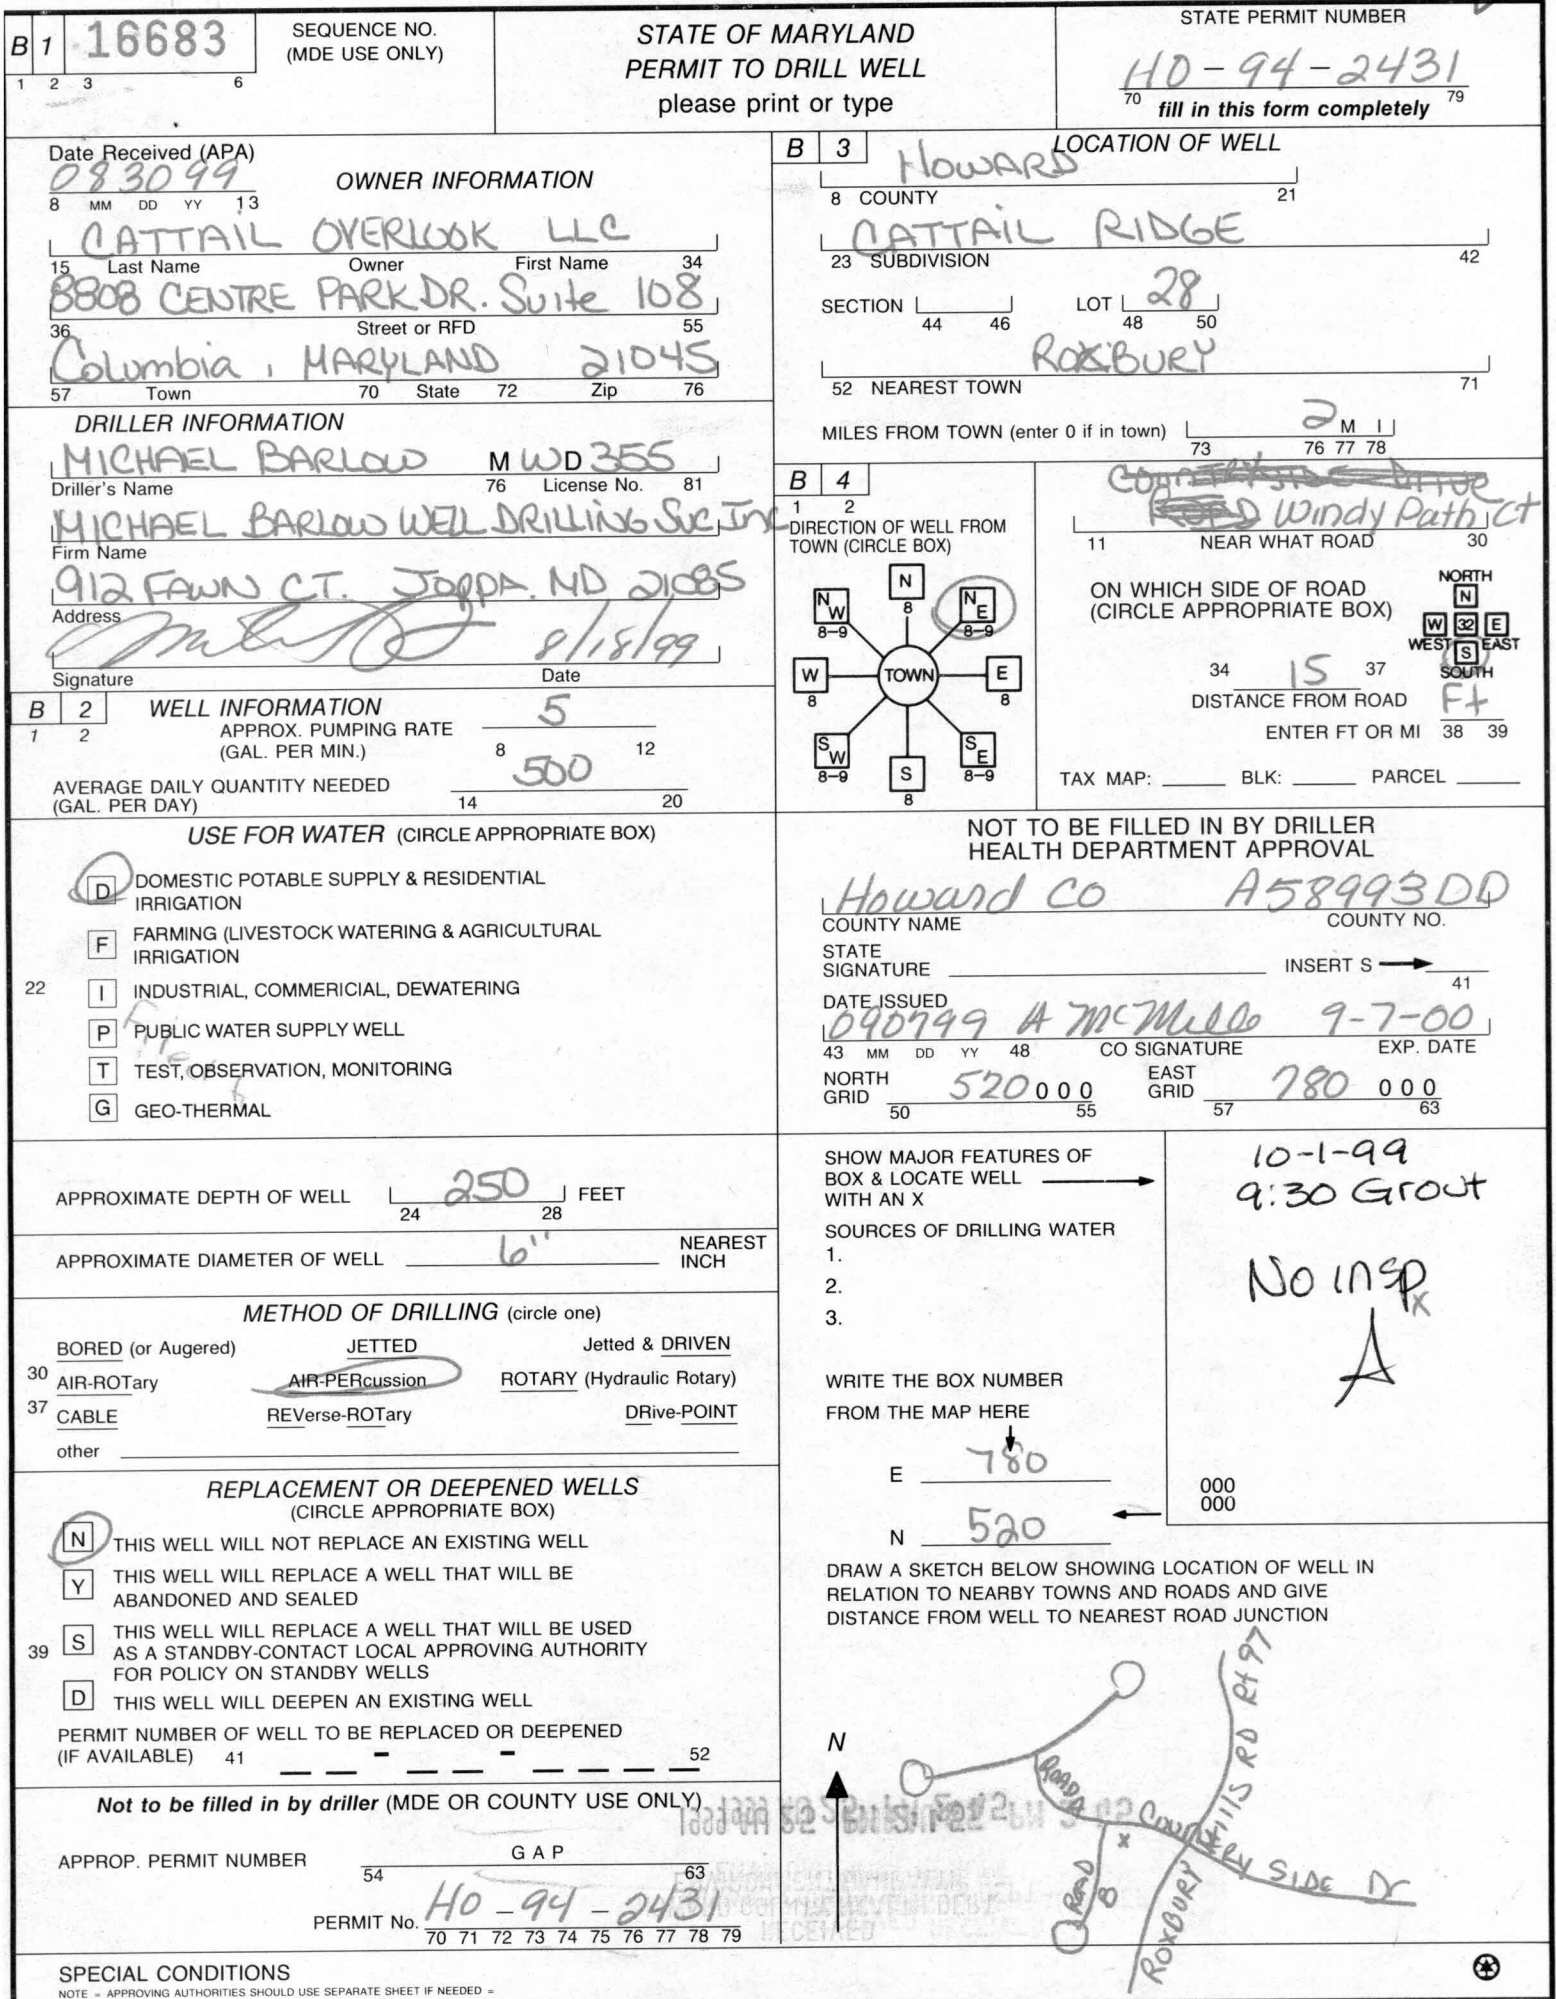 B 1 16683
1 2 3 6
SEQUENCE NO.
(MDE USE ONLY)
STATE OF MARYLAND
PERMIT TO DRILL WELL
please print or type
STATE PERMIT NUMBER
HO-94-2431
70 79
fill in this form completely
Date Received (APA)
083099
8 MM DD YY 13
OWNER INFORMATION
CATTAIL OVERLOOK LLC
15 Last Name Owner First Name 34
8808 CENTRE PARK DR. Suite 108
36 Street or RFD 55
Columbia, MARYLAND 21045
57 Town 70 State 72 Zip 76
DRILLER INFORMATION
MICHAEL BARLOW M W D 355
Driller's Name 76 License No. 81
MICHAEL BARLOW WELL DRILLING SVC, Inc
Firm Name
912 FAWN CT. JOPPA. MD 21085
Address
8/18/99
Signature Date
B 2 WELL INFORMATION
1 2
APPROX. PUMPING RATE 5
(GAL. PER MIN.) 8 12
AVERAGE DAILY QUANTITY NEEDED 500
(GAL. PER DAY) 14 20
USE FOR WATER (CIRCLE APPROPRIATE BOX)
D DOMESTIC POTABLE SUPPLY & RESIDENTIAL
IRRIGATION
F FARMING (LIVESTOCK WATERING & AGRICULTURAL
IRRIGATION
22 I INDUSTRIAL, COMMERICIAL, DEWATERING
P PUBLIC WATER SUPPLY WELL
T TEST, OBSERVATION, MONITORING
G GEO-THERMAL
APPROXIMATE DEPTH OF WELL 250 FEET
24 28
APPROXIMATE DIAMETER OF WELL 6" NEAREST
INCH
METHOD OF DRILLING (circle one)
BORED (or Augered) JETTED Jetted & DRIVEN
30 AIR-ROTary AIR-PERcussion ROTARY (Hydraulic Rotary)
37 CABLE REVerse-ROTary DRive-POINT
other
REPLACEMENT OR DEEPENED WELLS
(CIRCLE APPROPRIATE BOX)
N THIS WELL WILL NOT REPLACE AN EXISTING WELL
Y THIS WELL WILL REPLACE A WELL THAT WILL BE
ABANDONED AND SEALED
39 S THIS WELL WILL REPLACE A WELL THAT WILL BE USED
AS A STANDBY-CONTACT LOCAL APPROVING AUTHORITY
FOR POLICY ON STANDBY WELLS
D THIS WELL WILL DEEPEN AN EXISTING WELL
PERMIT NUMBER OF WELL TO BE REPLACED OR DEEPENED
(IF AVAILABLE) 41 - - 52
Not to be filled in by driller (MDE OR COUNTY USE ONLY)
APPROP. PERMIT NUMBER G A P
54 63
PERMIT No. HO-94-2431
70 71 72 73 74 75 76 77 78 79
SPECIAL CONDITIONS
NOTE = APPROVING AUTHORITIES SHOULD USE SEPARATE SHEET IF NEEDED =
B 3 LOCATION OF WELL
HOWARD
8 COUNTY 21
CATTAIL RIDGE
23 SUBDIVISION 42
SECTION LOT 28
44 46 48 50
ROXBURY
52 NEAREST TOWN 71
MILES FROM TOWN (enter 0 if in town) 2 M I
73 76 77 78
B 4
1 2
DIRECTION OF WELL FROM
TOWN (CIRCLE BOX)
N
8
NW
8-9
NE
8-9
W
8
TOWN
E
8
SW
8-9
S
8
SE
8-9
COUNTRYSIDE Drive
ROAD Windy Path Ct
11 NEAR WHAT ROAD 30
ON WHICH SIDE OF ROAD
(CIRCLE APPROPRIATE BOX)
NORTH
N
W 32 E
WEST EAST
S
SOUTH
34 15 37
DISTANCE FROM ROAD Ft
ENTER FT OR MI 38 39
TAX MAP: BLK: PARCEL
NOT TO BE FILLED IN BY DRILLER
HEALTH DEPARTMENT APPROVAL
Howard Co A58993DD
COUNTY NAME COUNTY NO.
STATE
SIGNATURE INSERT S
41
DATE ISSUED
090799 A McMille 9-7-00
43 MM DD YY 48 CO SIGNATURE EXP. DATE
NORTH
GRID 520 0 0 0
50 55
EAST
GRID 780 0 0 0
57 63
SHOW MAJOR FEATURES OF
BOX & LOCATE WELL
WITH AN X
SOURCES OF DRILLING WATER
1.
2.
3.
WRITE THE BOX NUMBER
FROM THE MAP HERE
E 780
N 520
10-1-99
9:30 Grout
No insp
X
A
000
000
DRAW A SKETCH BELOW SHOWING LOCATION OF WELL IN
RELATION TO NEARBY TOWNS AND ROADS AND GIVE
DISTANCE FROM WELL TO NEAREST ROAD JUNCTION
N
ROAD A
x
ROAD B
COUNTRY SIDE Dr
ROXBURY MILLS RD Rt 97
RECEIVED